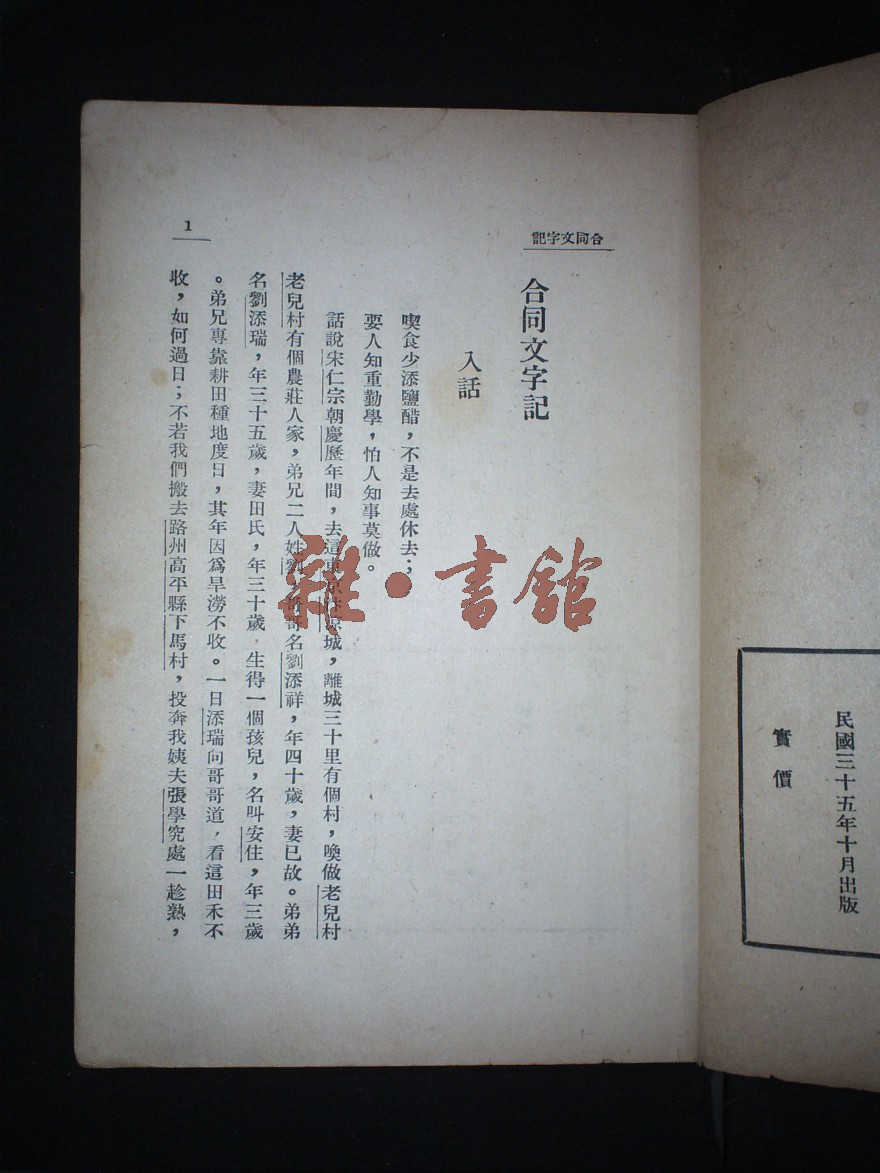 民國三十五年十月出版
實價
合同文字記
合同文字記
入話
喫食少添鹽醋，不是去處休去；
要人知重勤學，怕人知事莫做。
話說宋仁宗朝慶歷年間，去這東京汴涼城，離城三十里有個村，喚做老兒村
老兒村有個農莊人家，弟兄二人姓劉，哥哥名劉添祥，年四十歲，妻已故。弟弟
名劉添瑞，年三十五歲，妻田氏，年三十歲，生得一個孩兒，名叫安住，年三歲
。弟兄專靠耕田種地度日，其年因爲旱澇不收。一日添瑞向哥哥道，看這田禾不
收，如何過日；不若我們搬去路州高平縣下馬村，投奔我姨夫張學究處一趁熟，
1
雜·書館